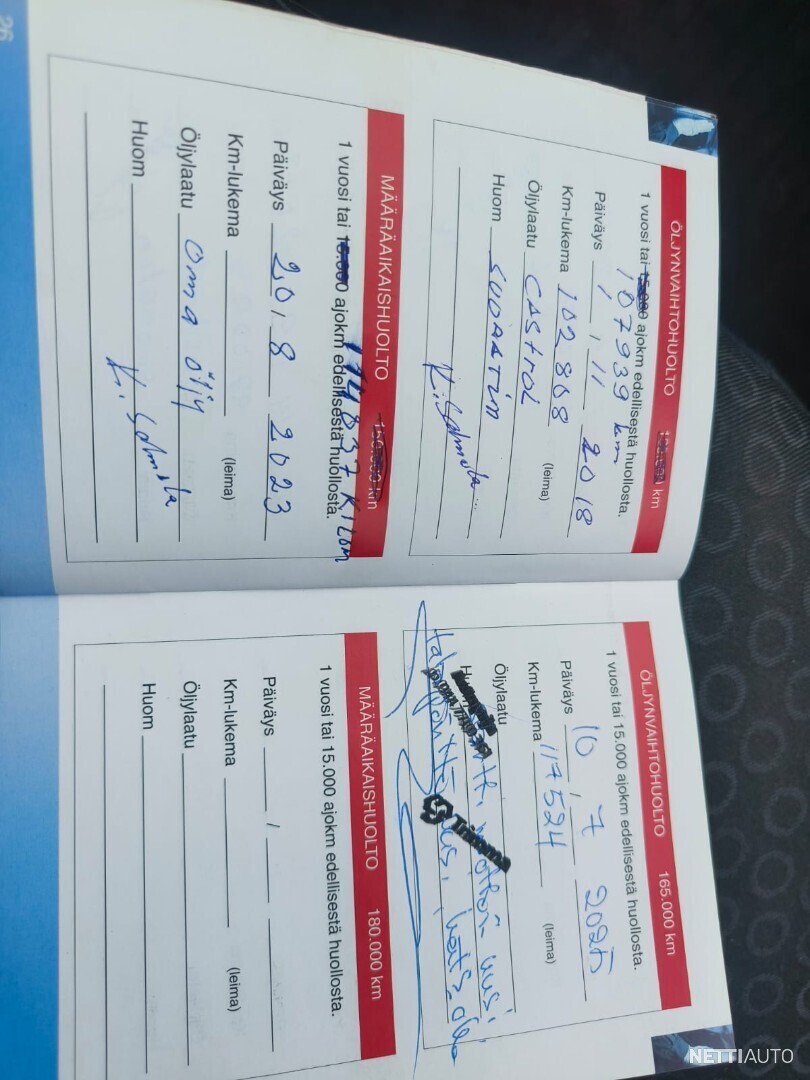 ÖLJYNVAIHTOHUOLTO km
1 vuosi tai 15.000 ajokm edellisestä huollosta.
107939 km
Päiväys 1 / 11 2018
Km-lukema 102808
(leima)
Öljylaatu CASTROL
Huom SUODATIN
MÄÄRÄAIKAISHUOLTO 150.000 km
1 vuosi tai 15.000 ajokm edellisestä huollosta.
Päiväys 20.8 2023
Km-lukema
(leima)
Öljylaatu oma öljy
Huom
26
ÖLJYNVAIHTOHUOLTO 165.000 km
1 vuosi tai 15.000 ajokm edellisestä huollosta.
Päiväys 10 / 7 2025
Km-lukema 117524
(leima)
Öljylaatu
MÄÄRÄAIKAISHUOLTO 180.000 km
1 vuosi tai 15.000 ajokm edellisestä huollosta.
Päiväys /
Km-lukema
(leima)
Öljylaatu
Huom
NETTIAUTO